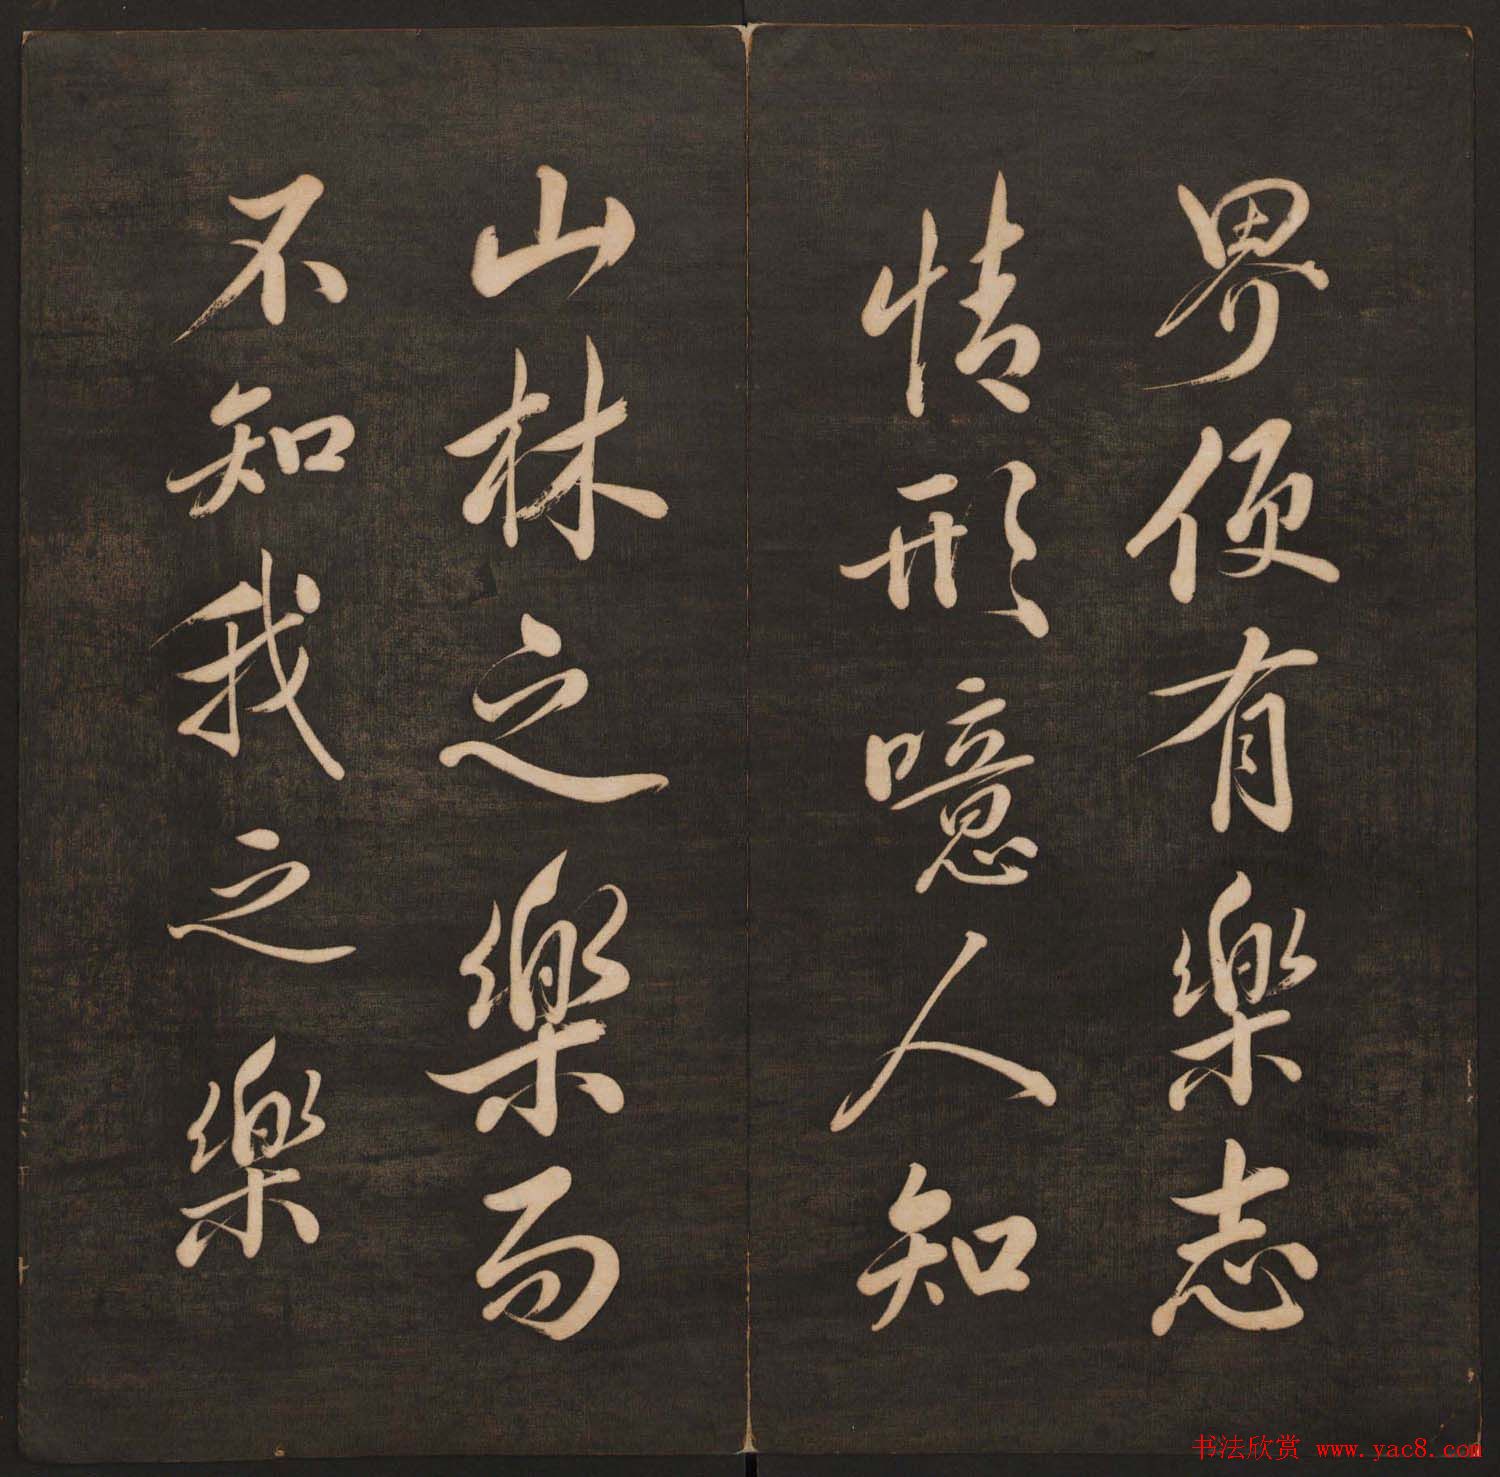 界便有樂志
情形噫人知
山林之樂而
不知我之樂
书法欣赏 www.yac8.com